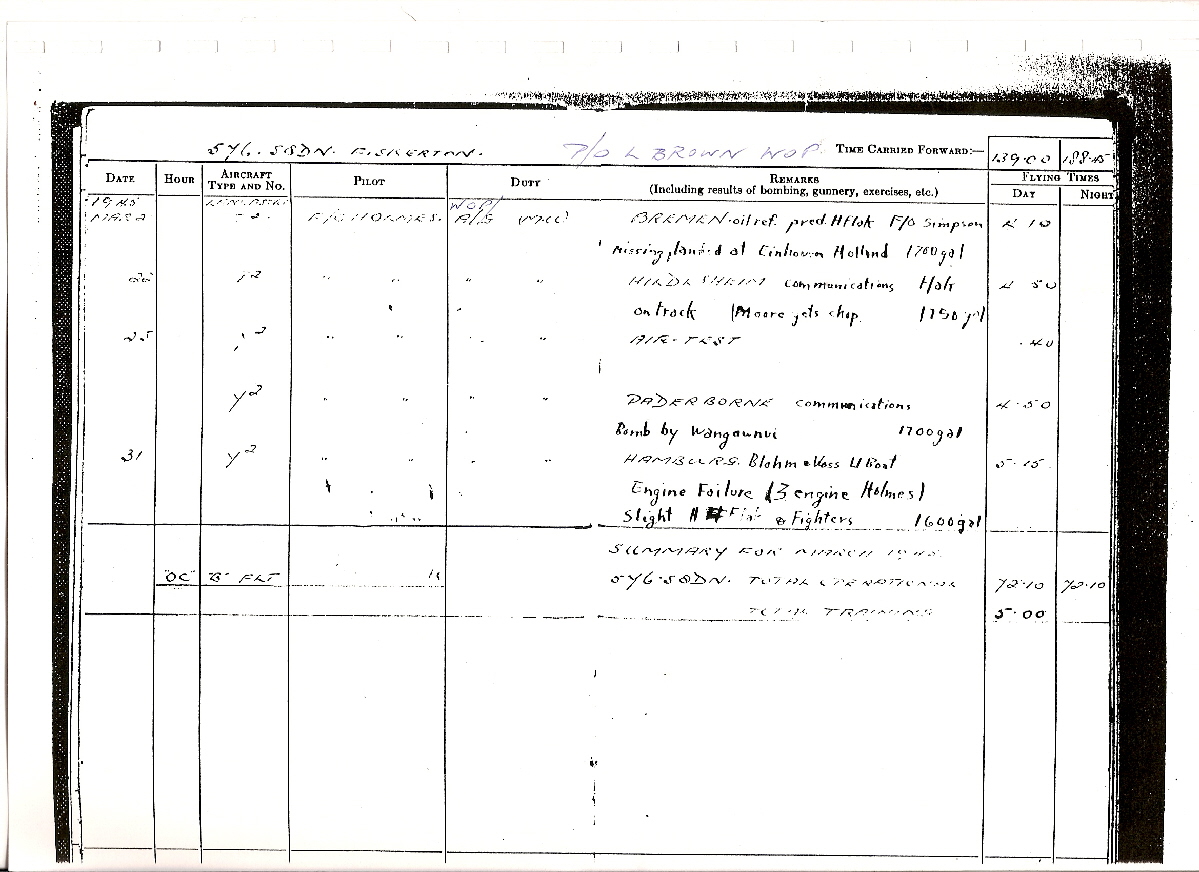 576. SQDN. FISKERTON. P/O L BROWN WOP. TIME CARRIED FORWARD:— 139.00 188.45
DATE HOUR AIRCRAFT TYPE AND NO. PILOT DUTY REMARKS (Including results of bombing, gunnery, exercises, etc.) FLYING TIMES DAY NIGHT
1945 LANCASTER WOP/
MAR F/O HOLMES. A/G BREMEN oil ref. pred. H flak F/O Simpson 4 10
missing, landed at Einhoven Holland 1700gal
22 " " " " HILDESHEIM communications 4 50
on track (Moore gets chop. 1750 gal
25 " " " " AIR-TEST .40
Y2 " " " " PADERBORNE communications 4.50
Bomb by Wanganui 1700gal
31 Y2 " " " " HAMBURG. Blohm & Voss U Boat 5.15
Engine Failure (3 engine Holmes)
Slight H & Fighters 1600gal
SUMMARY FOR MARCH 1945
"OC" "B" FLT 576-SQDN. TOTAL OPERATIONAL 72.10 72.10
TOTAL TRAINING 5.00